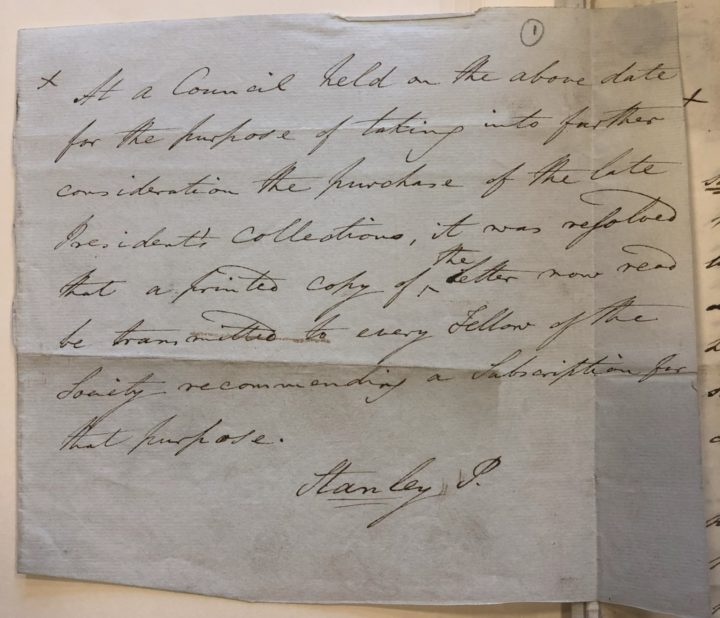 1
x At a Council held on the above date
for the purpose of taking into further
consideration the purchase of the late
President's Collections, it was resolved
that a printed copy of ^the letter now read
be transmitted to every Fellow of the
Society recommending a Subscription for
that purpose.
Stanley P.
x